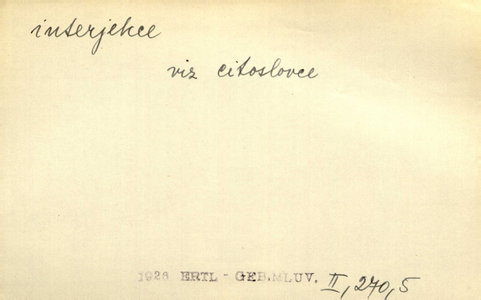 interjekce
viz citoslovce
1926 ERTL - GEB.MLUV. II, 270, 5